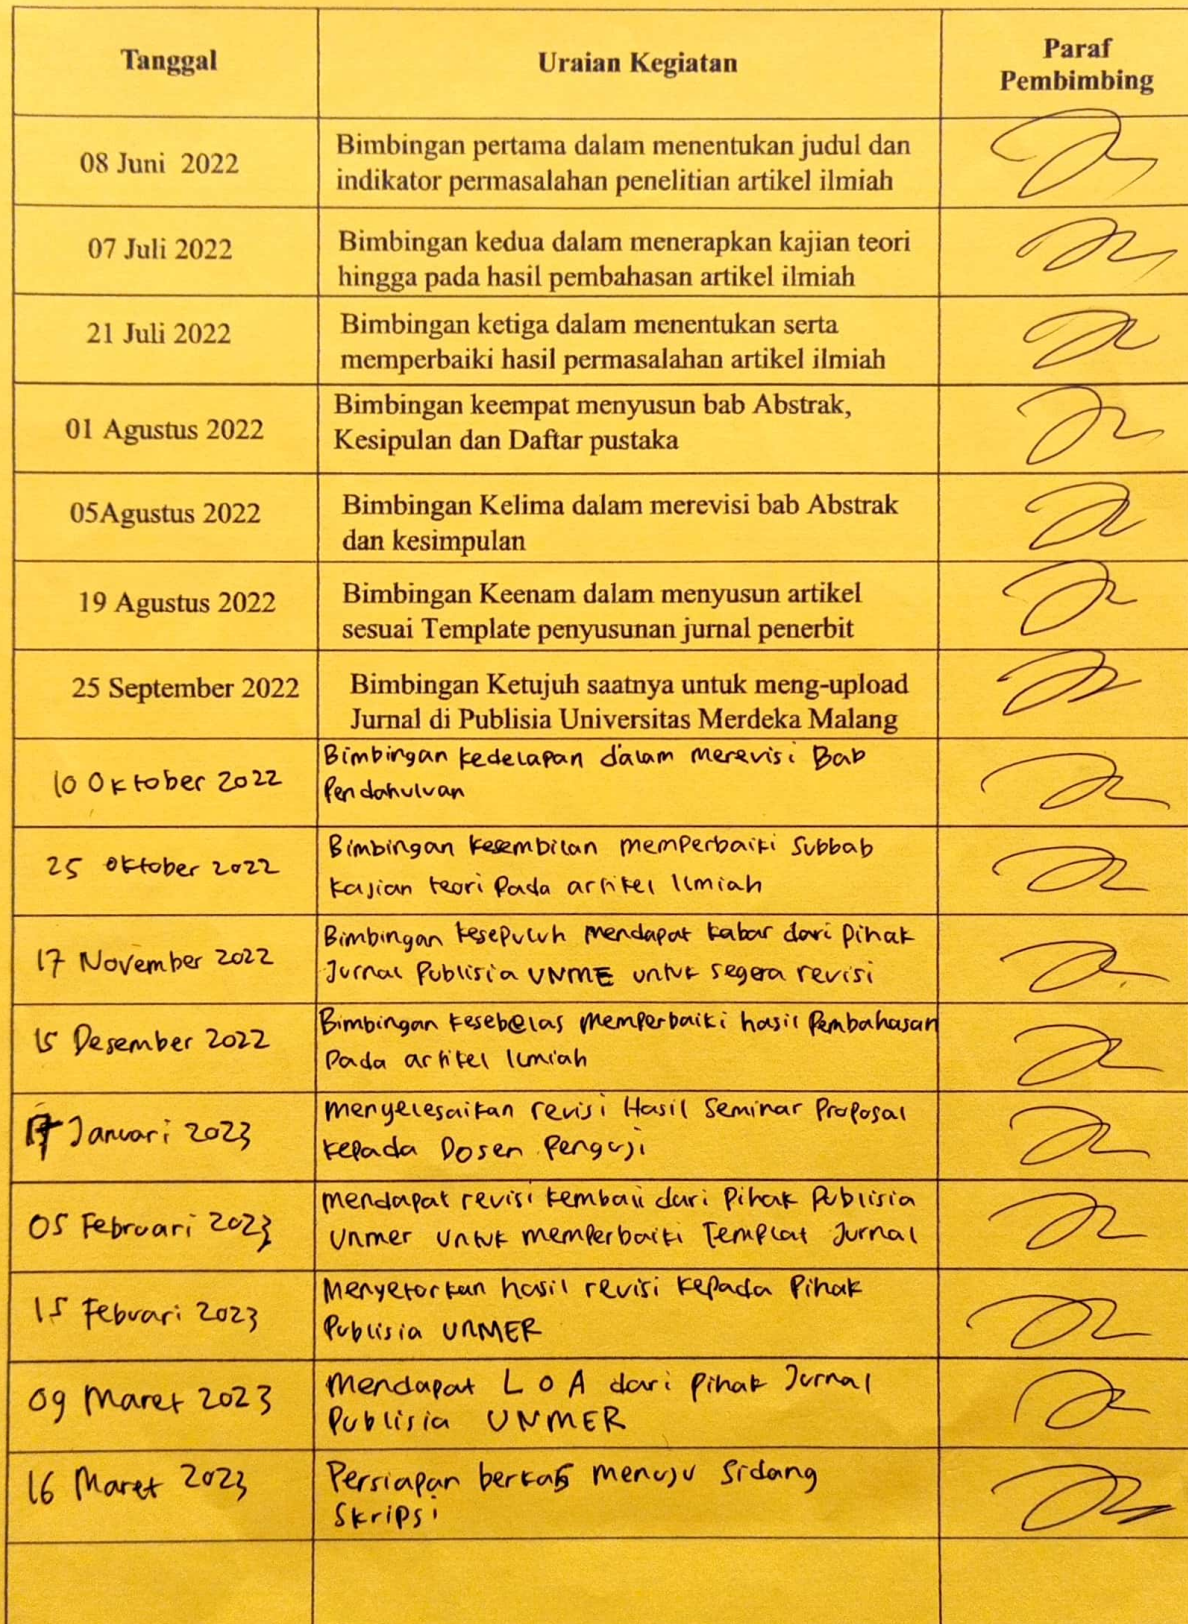 Tanggal
Uraian Kegiatan
Paraf
Pembimbing
08 Juni 2022
Bimbingan pertama dalam menentukan judul dan
indikator permasalahan penelitian artikel ilmiah
07 Juli 2022
Bimbingan kedua dalam menerapkan kajian teori
hingga pada hasil pembahasan artikel ilmiah
21 Juli 2022
Bimbingan ketiga dalam menentukan serta
memperbaiki hasil permasalahan artikel ilmiah
01 Agustus 2022
Bimbingan keempat menyusun bab Abstrak,
Kesipulan dan Daftar pustaka
05Agustus 2022
Bimbingan Kelima dalam merevisi bab Abstrak
dan kesimpulan
19 Agustus 2022
Bimbingan Keenam dalam menyusun artikel
sesuai Template penyusunan jurnal penerbit
25 September 2022
Bimbingan Ketujuh saatnya untuk meng-upload
Jurnal di Publisia Universitas Merdeka Malang
10 Oktober 2022
Bimbingan kedelapan dalam merevisi Bab
Pendahuluan
25 Oktober 2022
Bimbingan kesembilan memperbaiki Subbab
kajian teori Pada artikel Ilmiah
17 November 2022
Bimbingan kesepuluh mendapat kabar dari pihak
Jurnal Publisia UNME untuk segera revisi
15 Desember 2022
Bimbingan kesebelas memperbaiki hasil Pembahasan
Pada artikel Ilmiah
17 Januari 2023
Menyelesaikan revisi Hasil Seminar Proposal
kepada Dosen Penguji
05 Februari 2023
Mendapat revisi kembali dari Pihak Publisia
Unmer Untuk memperbaiki Templat Jurnal
15 Febuari 2023
Menyetorkan hasil revisi kepada Pihak
Publisia UNMER
09 Maret 2023
Mendapat L O A dari pihak Jurnal
Publisia UNMER
16 Maret 2023
Persiapan berkas menuju Sidang
Skripsi